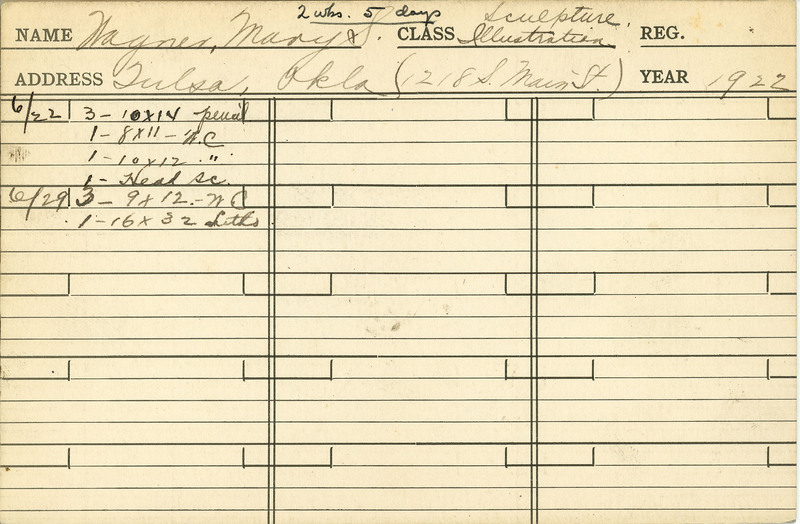 2 wks. 5 days
NAME Wagner, Mary S. CLASS Sculpture, Illustration REG.
ADDRESS Tulsa, Okla (1218 S. Main St.) YEAR 1922
6/22 3 - 10x14 pencil
1 - 8x11 - W.C
1 - 10x12 "
1 - Head Sc.
6/29 3 - 9x12 - W C
1 - 16x32